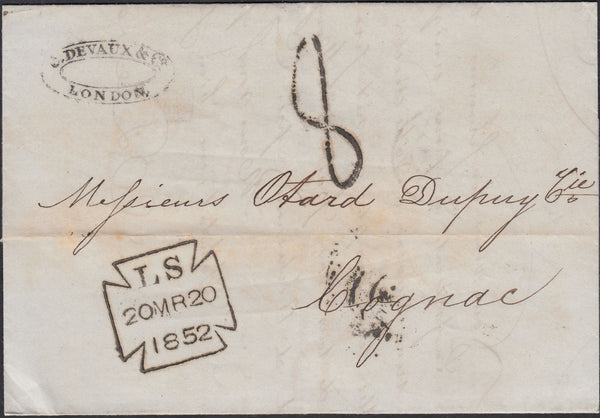 C. DEVAUX & Co
LONDON.
8
Messieurs Otard Dupuy & Cie
Cognac
LS
20MR20
1852